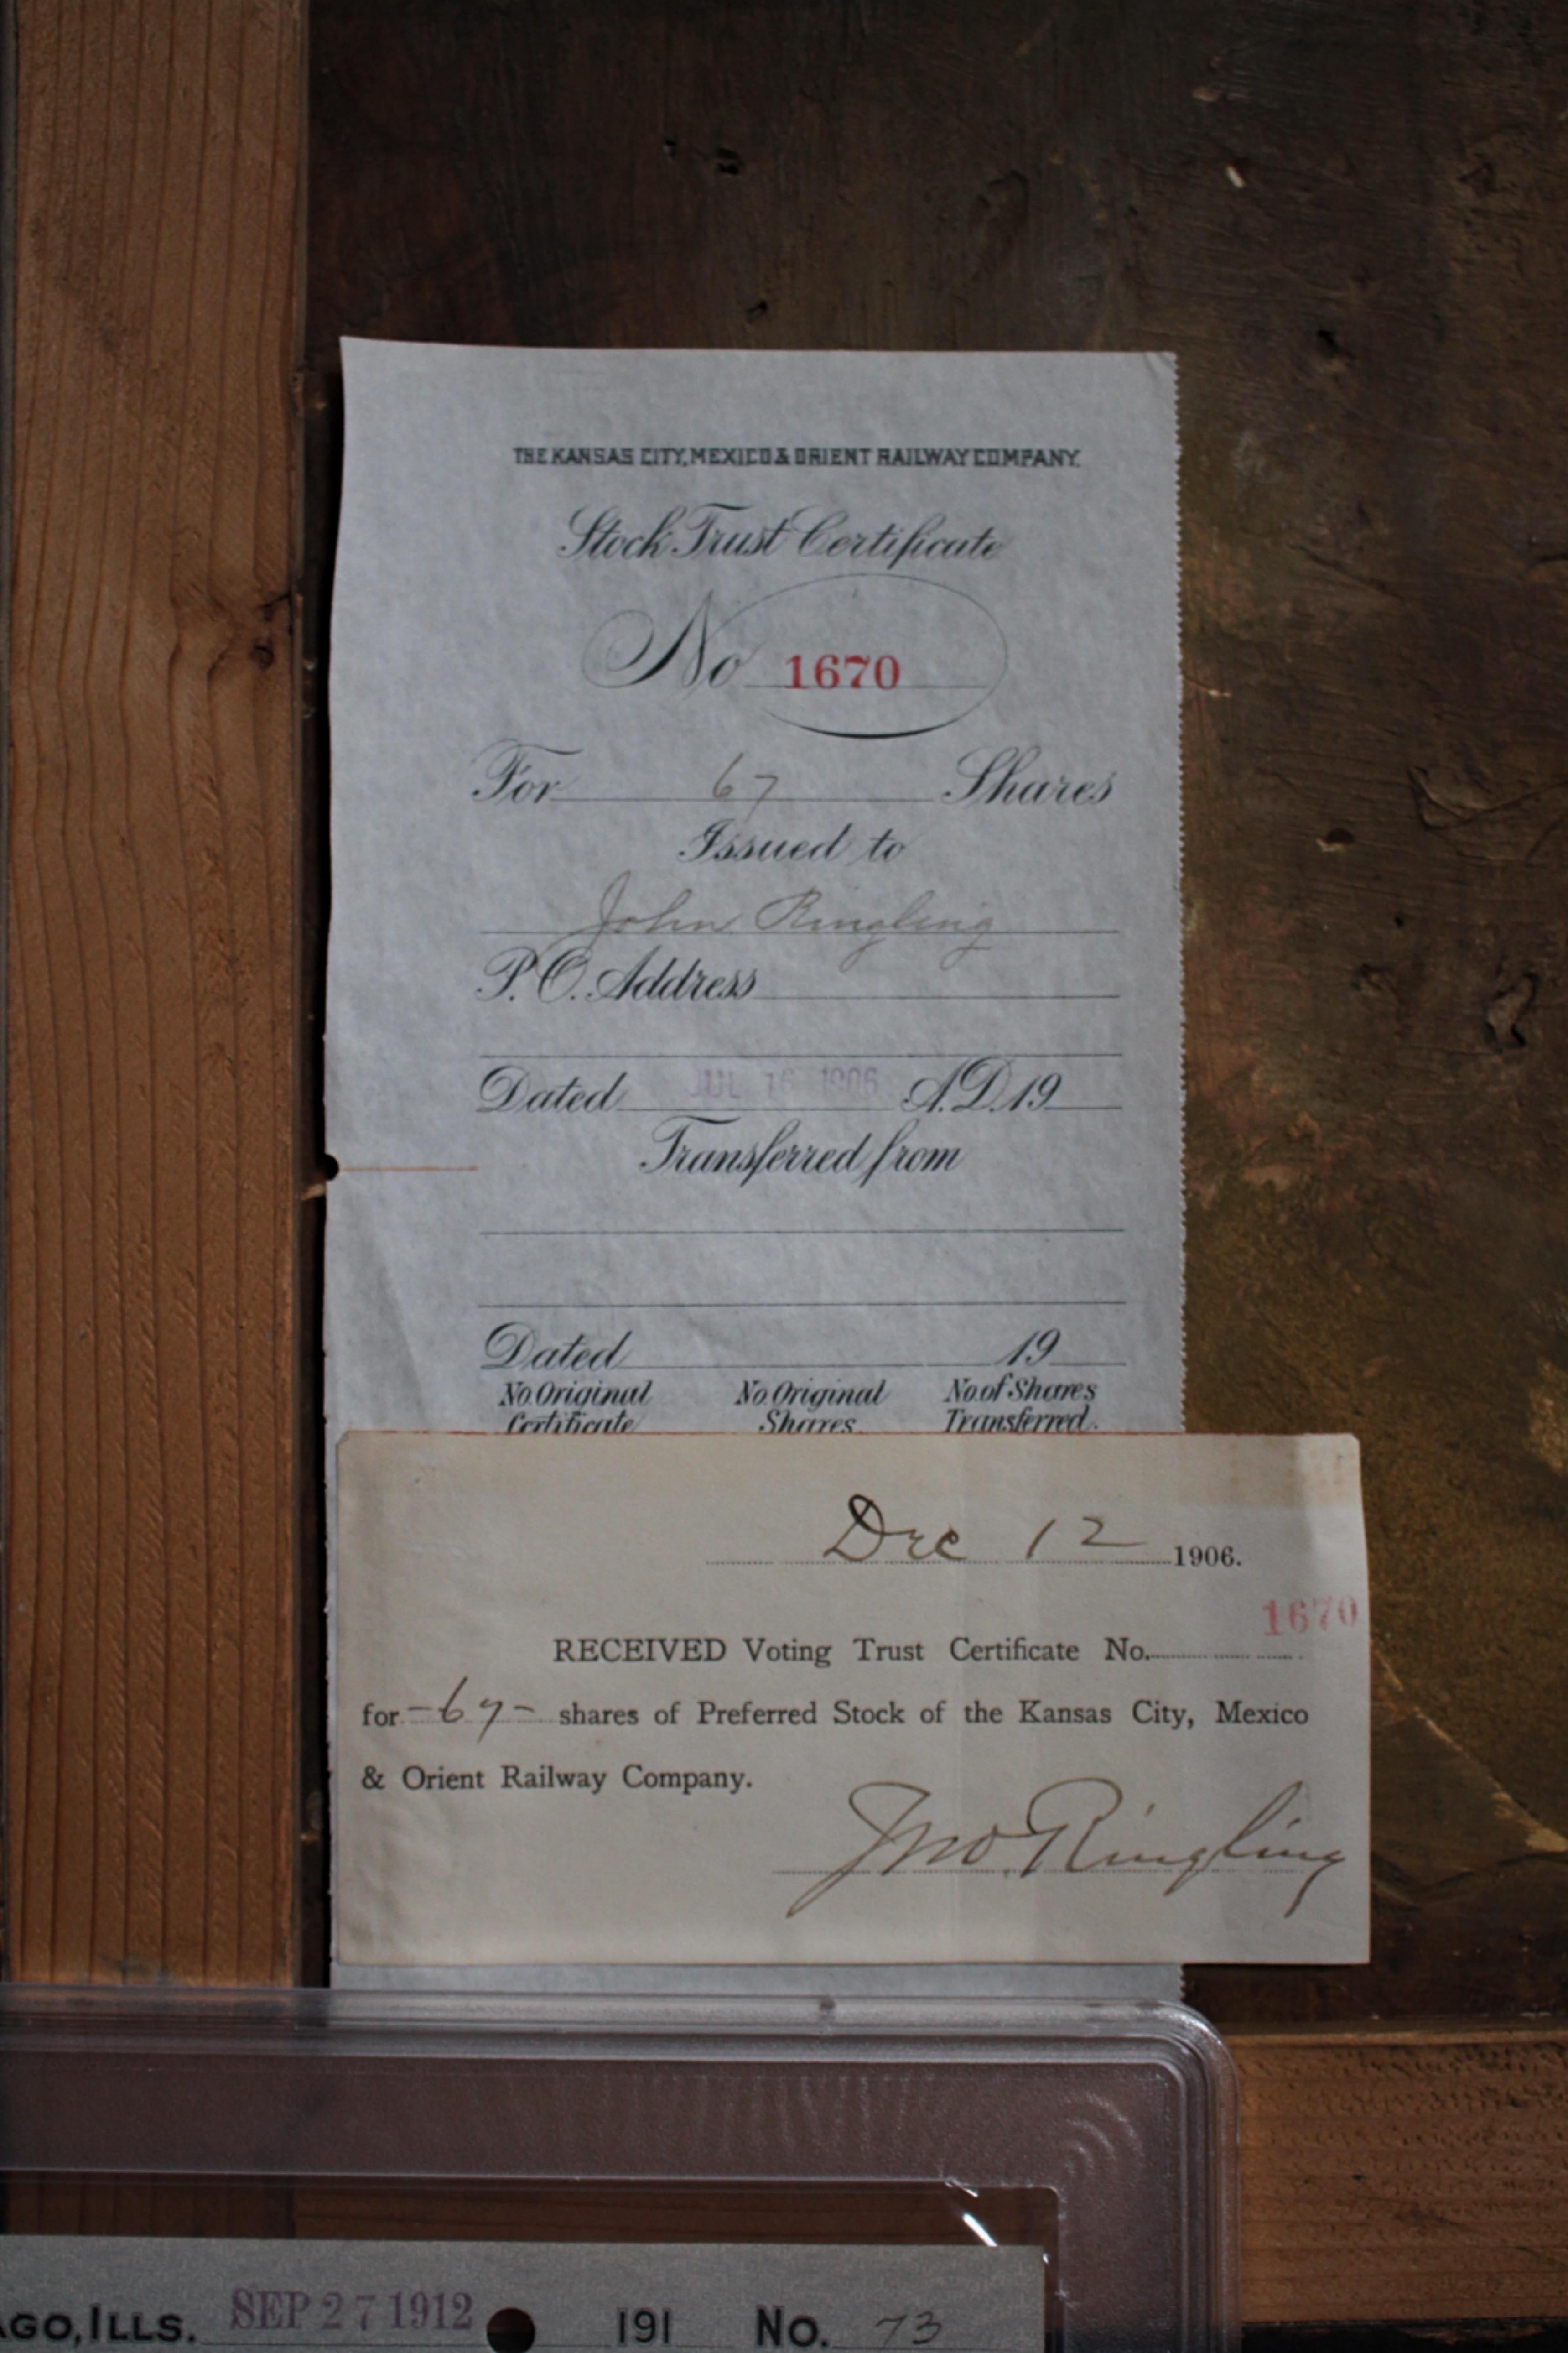 THE KANSAS CITY, MEXICO & ORIENT RAILWAY COMPANY.
Stock Trust Certificate
No 1670
For 67 Shares
Issued to
John Ringling
P. O. Address
Dated JUL 16 1906 A.D. 19
Transferred from
Dated 19
No. Original No. Original No. of Shares
Certificate Shares. Transferred.
Dec 12 1906.
1670
RECEIVED Voting Trust Certificate No.
for -67- shares of Preferred Stock of the Kansas City, Mexico
& Orient Railway Company.
Jno. Ringling
AGO, ILLS. SEP 27 1912 191 No. 73